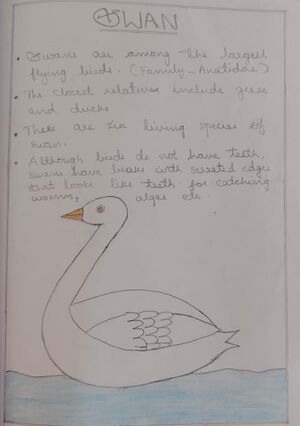 SWAN
• Swans are among the largest
flying birds. (Family - Anatidae)
• The closest relatives include geese
and ducks
• There are six living species of
swan.
• Although birds do not have teeth,
swans have beaks with serrated edges
that looks like teeth for catching
worms, algae etc.